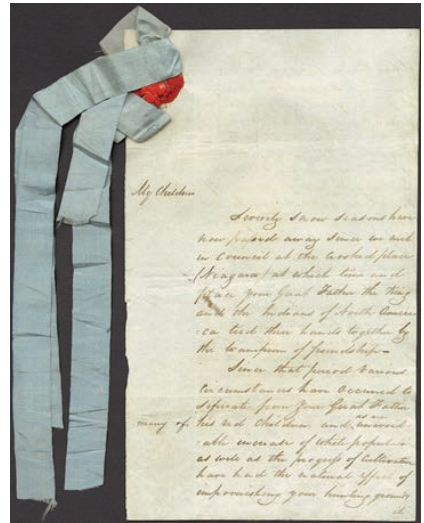 My Children
Seventy snow seasons have
now passed away since we met
in Council at the crooked place
(Niagara) at which time and
place your Great Father the King
and the Indians of North Ameri-
-ca tied their hands together by
the wampum of friendship—
Since that period various
circumstances have occurred to
separate from your Great Father
many of his red Children, and as an
-able increase of white popul-n
as well as the progress of Cultivation
have had the natural effect of
impoverishing your hunting grounds
it